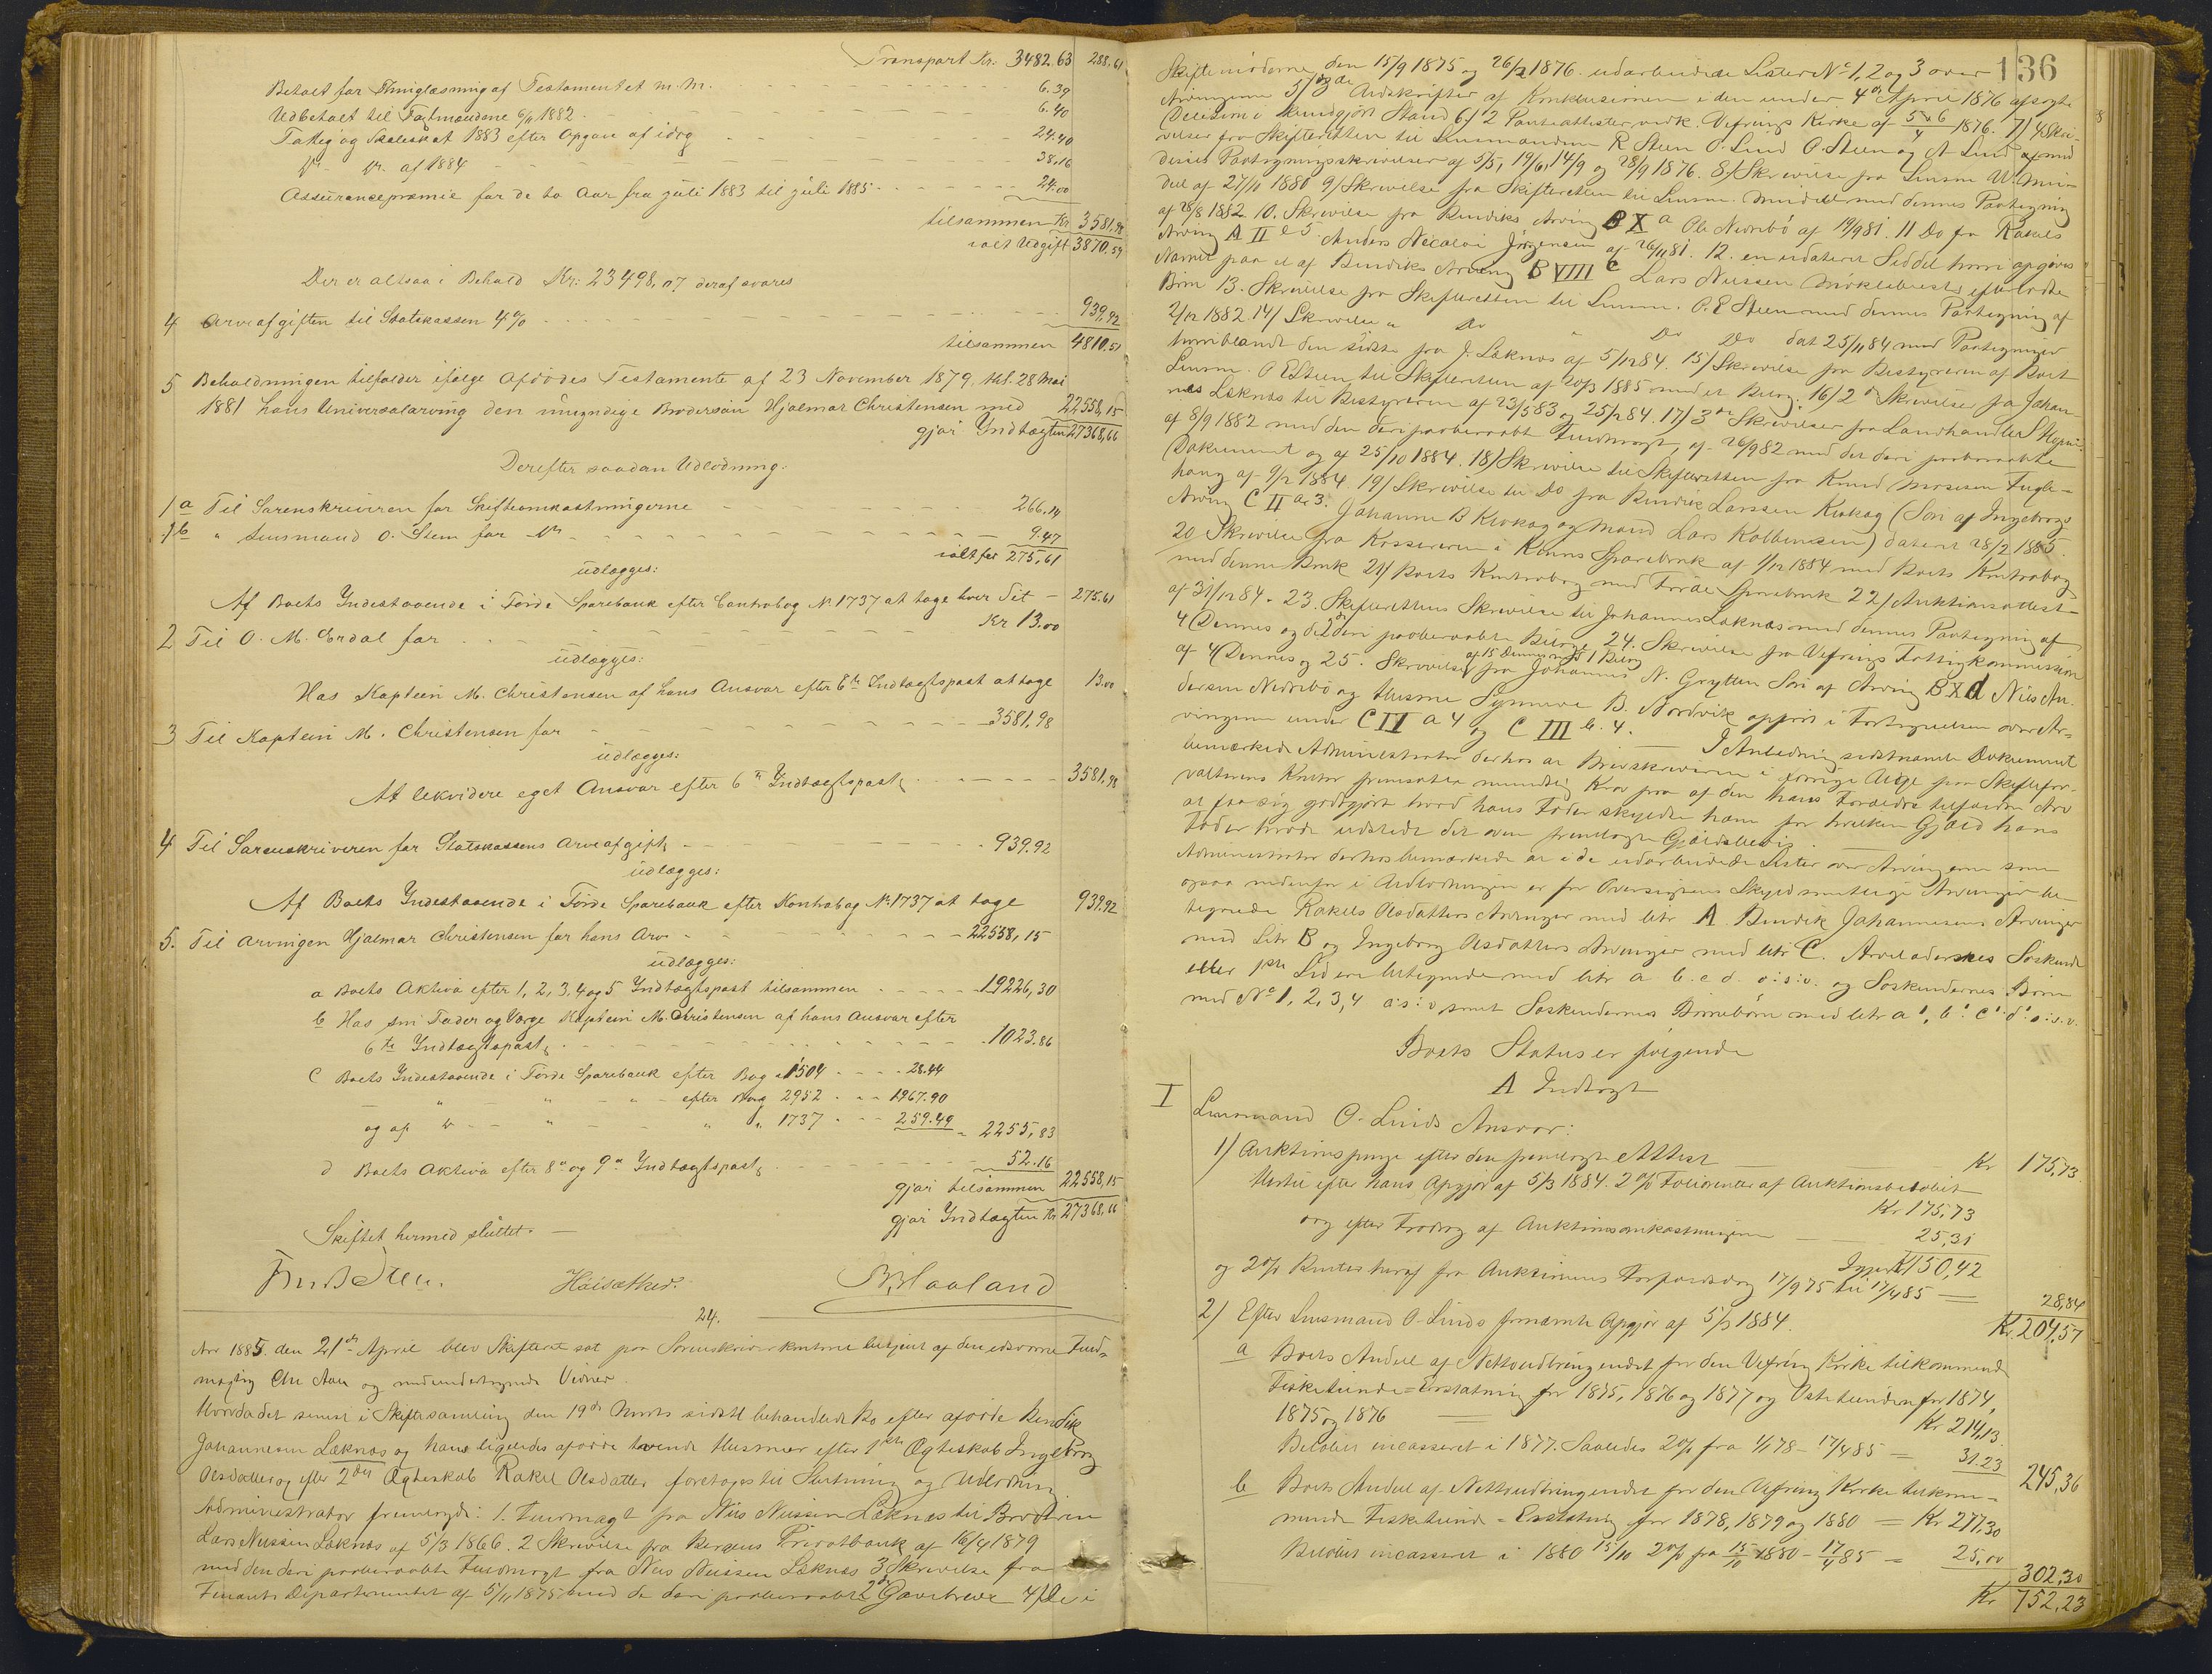 Transport Kr. 3482.63 288,61
Betalt for Thinglæsning af Testamentet m.m. 6.39
Udbetalt til Taxtmændene 6/11 1882 6.40
Fattig og Skoleskat 1883 efter Opgave af idag 24.40
Do - Do. af 1884 38.16
Assurancepræmie for de to Aar fra Juli 1883 til Juli 1885 24.00
tilsammen Kr 3581,98
ialt Udgift 3870.59
Der er altsaa i Behold Kr: 23498,07 deraf svares
4 Arveafgiften til Statskassen 4% 939,92
tilsammen 4810.51
5 Beholdningen tilfalder ifølge Afdødes Testamente af 23 November 1879, tgl. 28 Mai
1881 hans Universalarving den umyndige Brodersøn Hjalmar Christensen med 22558,15
gjør Indtægten 27368,66
Derefter saadan Udlodning:
1a Til Sorenskriveren for Skifteomkostningerne 266.14
1b " Lensmand O. Steen for Do 9.47
ialt for 275,61
udlægges:
Af Boets Indestaaende i Førde Sparebank efter Contrabog No 1737 at tage hver Sit 275.61
2 Til O. M. Erdal for Kr 13.00
udlægges:
Hos Kaptein M. Christensen af hans Ansvar efter 6te Indtægtspost at tage 13.00
3 Til Kaptein M. Christensen for 3581,98
udlægges:
At likvidere eget Ansvar efter 6te Indtægtspost 3581,98
4 Til Sorenskriveren for Statskassens Arveafgift 939.92
udlægges:
Af Boets Indestaaende i Førde Sparebank efter Kontrabog No 1737 at tage 939.92
5. Til Arvingen Hjalmar Christensen for hans Arv 22558,15
udlægges:
a Boets Aktiva efter 1, 2, 3, 4 og 5 Indtægtspost tilsammen 19226,30
b Hos sin Fader og Værge Kaptein M. Christensen af hans Ansvar efter
6te Indtægtspost 1023.86
c Boets Indestaaende i Førde Sparebank efter Bog 1504 28.44
" " " efter Bog 2952 1967.90
og af " " " 1737 259.49 2255,83
d Boets Aktiva efter 8de og 9de Indtægtspost 52.16
gjør tilsammen 22558,15
gjør Indtægten Kr 27368,66
Skiftet hermed sluttet.
Høisæther. Haaland
24.
Aar 1885 den 21de April blev Skifteret sat paa Sorenskriverkontoret betjent af den edsvorne Fuld-
mægtig Chr Aall og medundertegnede Vidner.
Hvorda det senest i Skiftesamling den 19de Marts sidstl behandlede Bo efter afdøde Bendik
Johannesen Læknes og hans ligeledes afdøde tvende Hustruer efter 1ste Ægteskab Ingeborg
Olsdatter og efter 2det Ægteskab Rakel Olsdatter foretoges til Slutning og Udlodning.
Administrator fremlagde: 1. Fuldmagt fra Nils Nilssen Læknes til Broderen
Lars Nilssen Læknes af 5/3 1866. 2 Skrivelse fra Bergens Privatbank af 16/4 1879
med den deri paaberaabte Fuldmagt fra Nils Nilssen Læknes 3 Skrivelse fra
Finants Departementet af 5/11 1875 med de deri paaberaabte 2de Gavebreve 4/ De i
136
Skiftemøderne den 15/9 1875 og 26/2 1876 udarbeidede Lister No 1, 2 og 3 over
Arvingerne 5/ 3de Udskrifter af Konklusionen i den under 4de April 1876 afsagte
Decision i kundgjort Stand 6/ 2 Panteattester vedk. Vefrings Kirke af 5 & 6/4 1876. 7/ 4 Skri-
velser fra Skifteretten til Lensmændene R Steen O. Lind O. Steen og A Lind med
disses Paategningsskrivelser af 5/5, 19/6, 14/9 og 28/9 1876. 8/ Skrivelse fra Lensm W. Mün-
del af 27/10 1880 9/ Skrivelse fra Skifteretten til Lensm. Mündel med dennes Paategning
af 28/8 1882. 10. Skrivelse fra Bendiks Arving B X a Ole Nedrebø af 19/9 81. 11 Do fra Rakels
Arving A II e 5 Anders Nicolai Jørgensen af 26/11 81. 12. en udateret Seddel hvori opgives
Navnet paa et af Bendiks Arving B VIII c Lars Nilssen Myklebusts efterladte
Børn 13. Skrivelse fra Skifteretten til Lensm. O. E Steen med dennes Paategning af
2/12 1882. 14/ Skrivelse " Do " Do Do dat 25/11 84 med Paategninger
hvoriblandt den sidste fra J. Læknes af 5/12 84. 15/ Skrivelse fra Bestyreren af Boet
Lensm. O E Steen til Skifteretten af 20/3 1885 med et Bilag. 16/ 2de Skrivelser fra Johan-
nes Læknes til Bestyreren af 23/5 83 og 25/2 84. 17/ 3de Skrivelser fra Landhandler S Hopen
af 8/9 1882 med den deri paaberaabt Fuldmagt, af 26/9 82 med det deri paaberaabte
Dokument og af 25/10 1884. 18/ Skrivelse til Skifteretten fra Knud Mosesen Fugle-
haug af 9/2 1884. 19/ Skrivelse til Do fra Bendik Larssen Krokag (Søn af Ingeborgs
Arving C II a 3. Johanne B Krokag og Mand Lars Kolbensen) dateret 28/2 1885.
20 Skrivelse fra Kassereren i Kinns Sparebank af 1/12 1884 med Boets Kontrabog
med denne Bank 21/ Boets Kontrabog med Førde Sparebank 22/ Auktionsattest
af 31/12 84. 23. Skifterettens Skrivelse til Johannes Læknes med dennes Paategning af
4 Dennes og det deri paaberaabte Bilag 24. Skrivelse fra Vefrings Fattigkommission
af 15 Dennes med 1 Bilag
af 4 Dennes og 25. Skrivelse fra Johannes N. Grytten Søn af Arving B X d Nils An-
dersen Nedrebø og Hustrue Synneve B. Nordvik opført i Fortegnelsen over Ar-
vingerne under C II a 4 og C III b. 4. I Anledning sidstnævnte Dokument
bemærkede Administrator derhos at Brevskriveren i forrige Uge paa Skiftefor-
valterens Kontor fremsatte mundtlig Krav paa af den hans Forældre tilfaldne Arv
at faa sig godtgjort hvad hans Fader skyldte ham for hvilken Gjæld hans
Fader havde udstedt det oven fremlagte Gjældsbevis.
Administrator derhos bemærkede at i de udarbeidede Lister over Arvingerne som
ogsaa nedenfor i Udlodningen er for Oversigtens Skyld samtlige Arvinger be-
tegnede Rakels Olsdatters Arvinger med litr A. Bendik Johannesens Arvinger
med Litr B og Ingeborg Olsdatters Arvinger med litr C. Arveladernes Søskende
eller 1ste Led ere betegnede med litr a b. c d o:s:v. og Søskendernes Børn
med No 1, 2, 3, 4 o:s:v, samt Søskendernes Børnebørn med litr a', b' c' d' o:s.v.
Boets Status er følgende
A Indtægt
I Lensmand O. Linds Ansvar:
1) Auktionspenge efter den fremlagte Attest Kr 175,73
Hertil efter hans Opgjør af 5/3 1884. 2% Folierenter af Auktionsbeløbet
Kr 175,73
og efter Fradrag af Auktionsomkostningerne 25,31
Igjen Kr 150,42
og 2% Renter heraf fra Auktionens Forfaldsdag 17/9 75 til 17/4 85 28,84
Kr. 204,57
2) Efter Lensmand O. Linds fornævnte Opgjør af 5/3 1884.
a Boets Andel af Nettoudbringendet for den Vefring Kirke tilkommende
Fisketiende-Erstatning for 1875, 1876 og 1877 og Ostetienden for 1874,
1875 og 1876 Kr 214,13
Beløbet incasseret i 1877. Saaledes 2% fra 1/1 78 - 17/4 85 31.23
245,36
b Boets Andel af Nettoudbringendet for den Vefring Kirke tilkom-
mende Fisketiende-Erstatning for 1878, 1879 og 1880 Kr 277,30
Beløbet incasseret i 1880 15/10 2% fra 15/10 1880 - 17/4 85 25,00
302,30
Kr 752,23